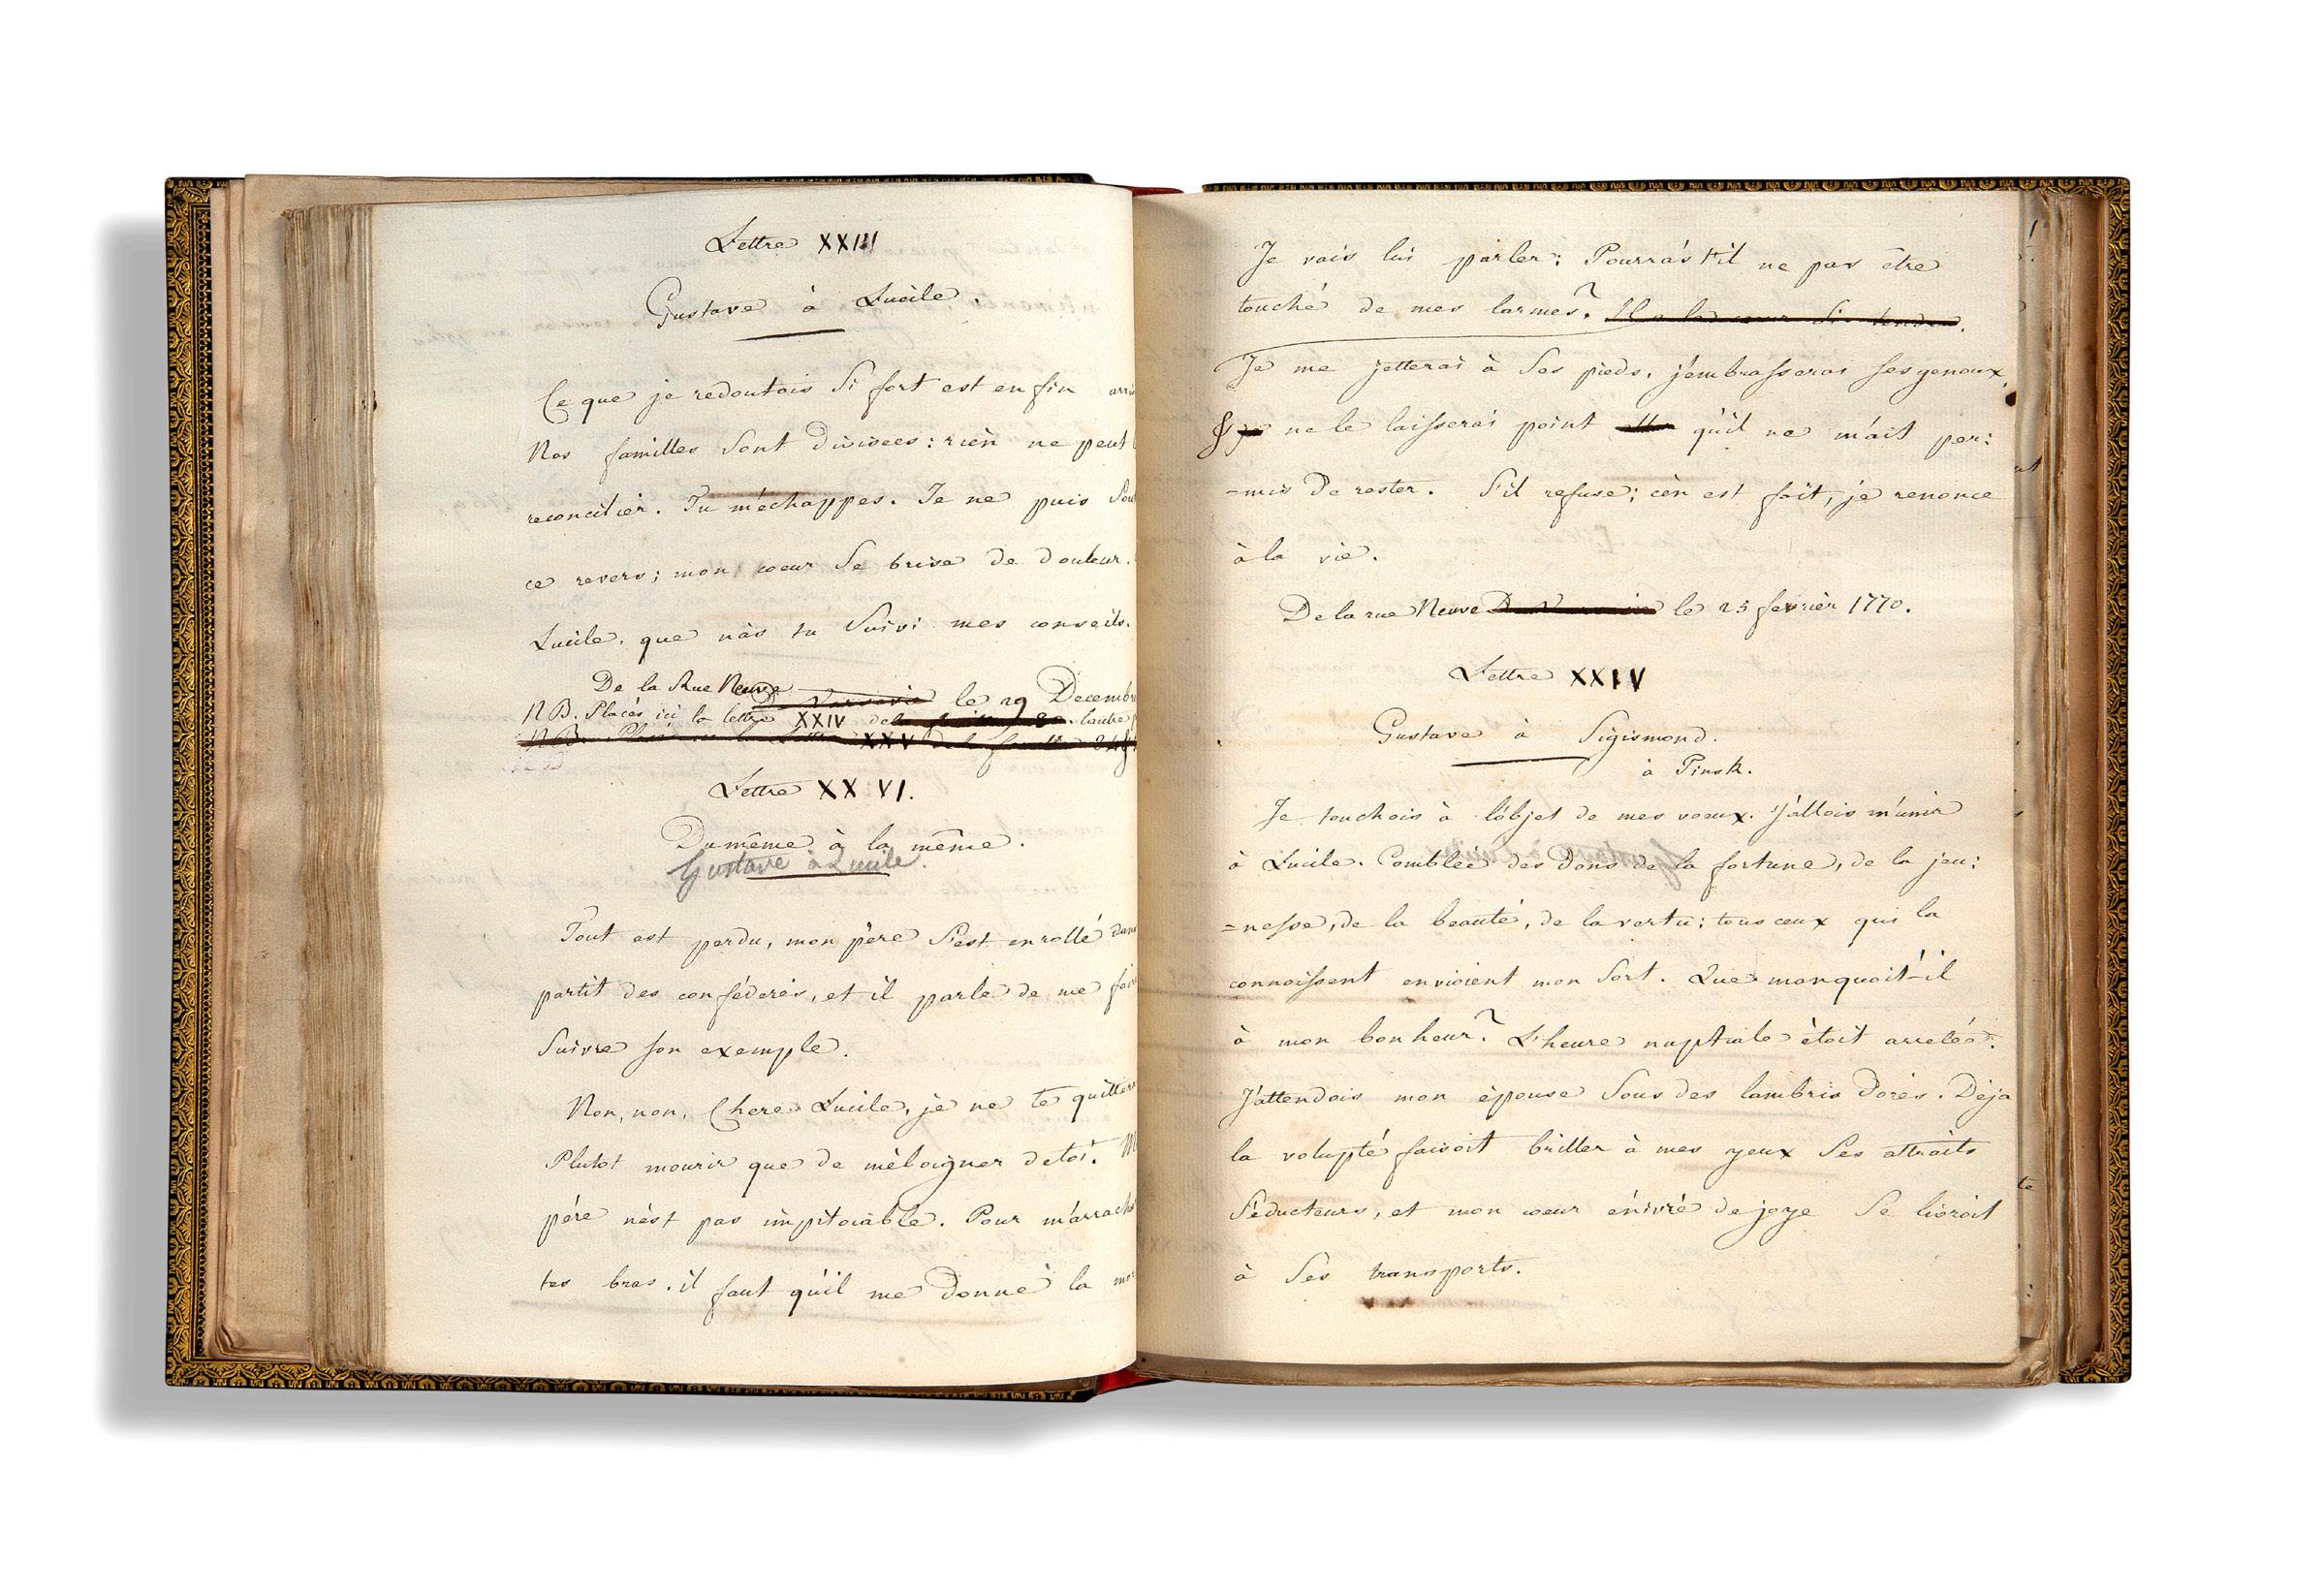 Lettre XXIII
Gustave à Lucile.
Ce que je redoutois si fort est en fin arri
Nos familles sont divisees: rien ne peut l
reconcilier. Tu m'échappes. Je ne puis Sou
ce revers; mon coeur se brise de douleur.
Lucile, que n'as tu suivi mes conseils.
De la Rue Neuve le 29 Decembre
NB. Placés ici la lettre XXIV de l'autre
NB. Placés la Lettre XXV de la feuille
Lettre XXVI.
Du même à la même.
Gustave à Lucile.
Tout est perdu, mon père s'est enrollé dans
partit des conféderés, et il parle de me fair
suivre son exemple.
Non, non, Chere Lucile, je ne te quitter
Plutot mourir que de m'éloigner de toi. M
père n'est pas impitoiable. Pour m'arracher
tes bras, il faut qu'il me donne la mor
Je vais lui parler: Pourra's t'il ne pas être
touché de mes larmes? Il a le coeur si tendre.
Je me jetterai à ses pieds, j'embrasserai ses genoux,
& je ne le laisserai point qu'il ne m'ait per:
=mis de rester. S'il refuse; c'en est fait, je renonce
à la vie.
De la rue Neuve le 25 fevrier 1770.
Lettre XXIV
Gustave à Sigismond.
à Pinsk.
Je touchois à l'objet de mes voeux. J'allois m'unir
à Lucile. Comblée des dons de la fortune, de la jeu:
=nesse, de la beauté, de la vertu; tous ceux qui la
connoissent envioient mon sort. Que manquoit-il
à mon bonheur? L'heure nuptiale étoit arretée.
J'attendois mon épouse sous des lambris dorés. Déja
la volupté faisoit briller à mes yeux ses attraits
séducteurs, et mon coeur énivré de joye se livroit
à ses transports.